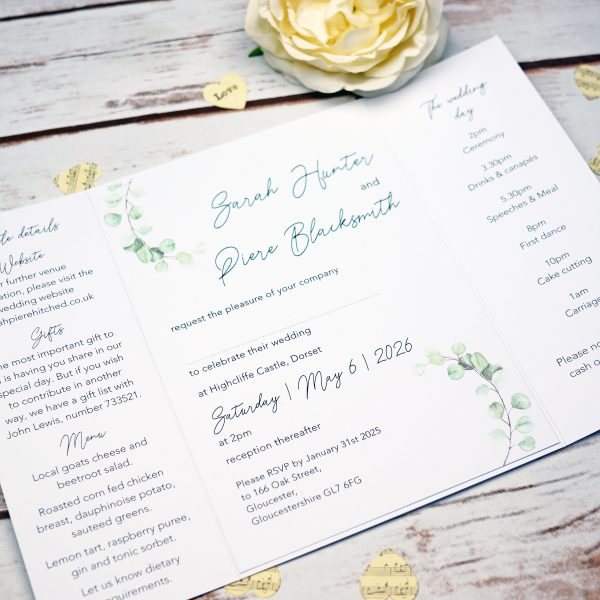 Love
le details
Website
further venue
ation, please visit the
wedding website
ahpierehitched.co.uk
Gifts
e most important gift to
is having you share in our
special day. But if you wish
to contribute in another
way, we have a gift list with
John Lewis, number 733521.
Menu
Local goats cheese and
beetroot salad.
Roasted corn fed chicken
breast, dauphinoise potato,
sauteed greens.
Lemon tart, raspberry puree,
gin and tonic sorbet.
Let us know dietary
requirements.
Sarah Hunter
and
Piere Blacksmith
request the pleasure of your company
to celebrate their wedding
at Highcliffe Castle, Dorset
Saturday | May 6 | 2026
at 2pm
reception thereafter
Please RSVP by January 31st 2025
to 166 Oak Street,
Gloucester,
Gloucestershire GL7 6FG
The wedding
day
2pm
Ceremony
3.30pm
Drinks & canapés
5.30pm
Speeches & Meal
8pm
First dance
10pm
Cake cutting
1am
Carriage
Please no
cash o